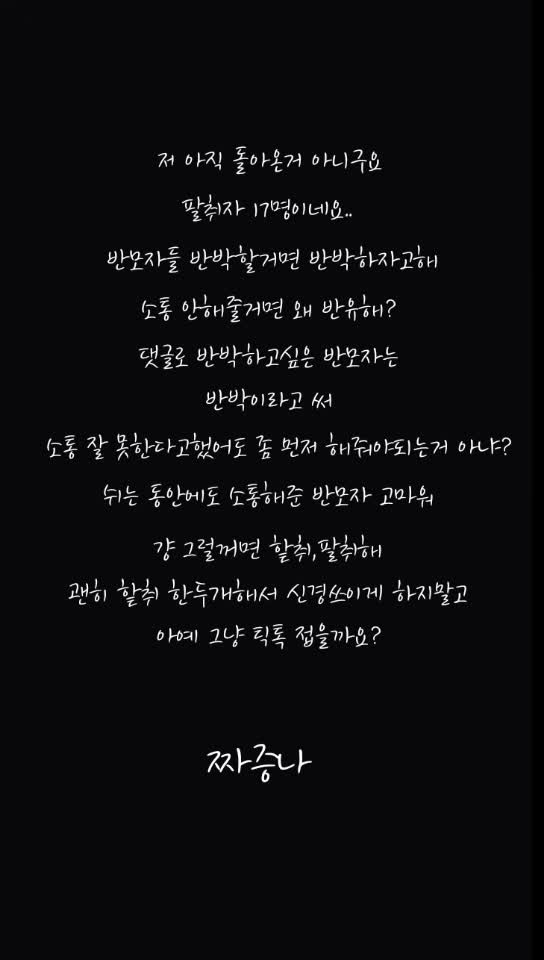 저 아직 돌아온거 아니구요
팔취자 17명이네요..
반모자들 반박할거면 반박하자고해
소통 안해줄거면 왜 반유해?
댓글로 반박하고싶은 반모자는
반박이라고 써
소통 잘 못한다고했어도 좀 먼저 해줘야되는거 아냐?
쉬는 동안에도 소통해준 반모자 고마워
걍 그럴꺼면 핱취,팔취해
괜히 핱취 한두개해서 신경쓰이게 하지말고
아예 그냥 틱톡 접을까요?
짜증나